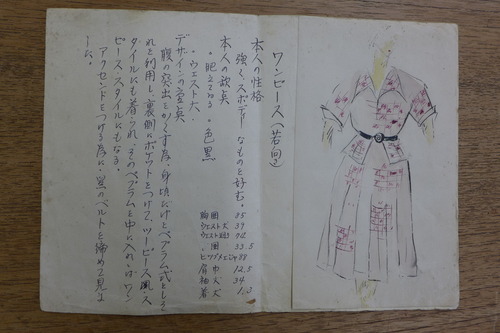 ワンピース（若向）
本人の性格
強く、スポーディーなものを好む。
本人の欠点
・肥えてゐる ・色黒
・ウエスト大、
デザインの意
腹の突出をかくす為、身頃だけペプラム式とし
れを利用し、裏側にポケットをつけて、ツーピース風ス
タイルにも着られ、そのペプラムを中に入れゝばワン
ピーススタイルにもなる。
アクセントをつける為に、黒のベルトを締めて見ま
した。
胸囲 85
ウエスト 丈 39
33.5
88
肩巾 12.5
袖丈 34
着丈